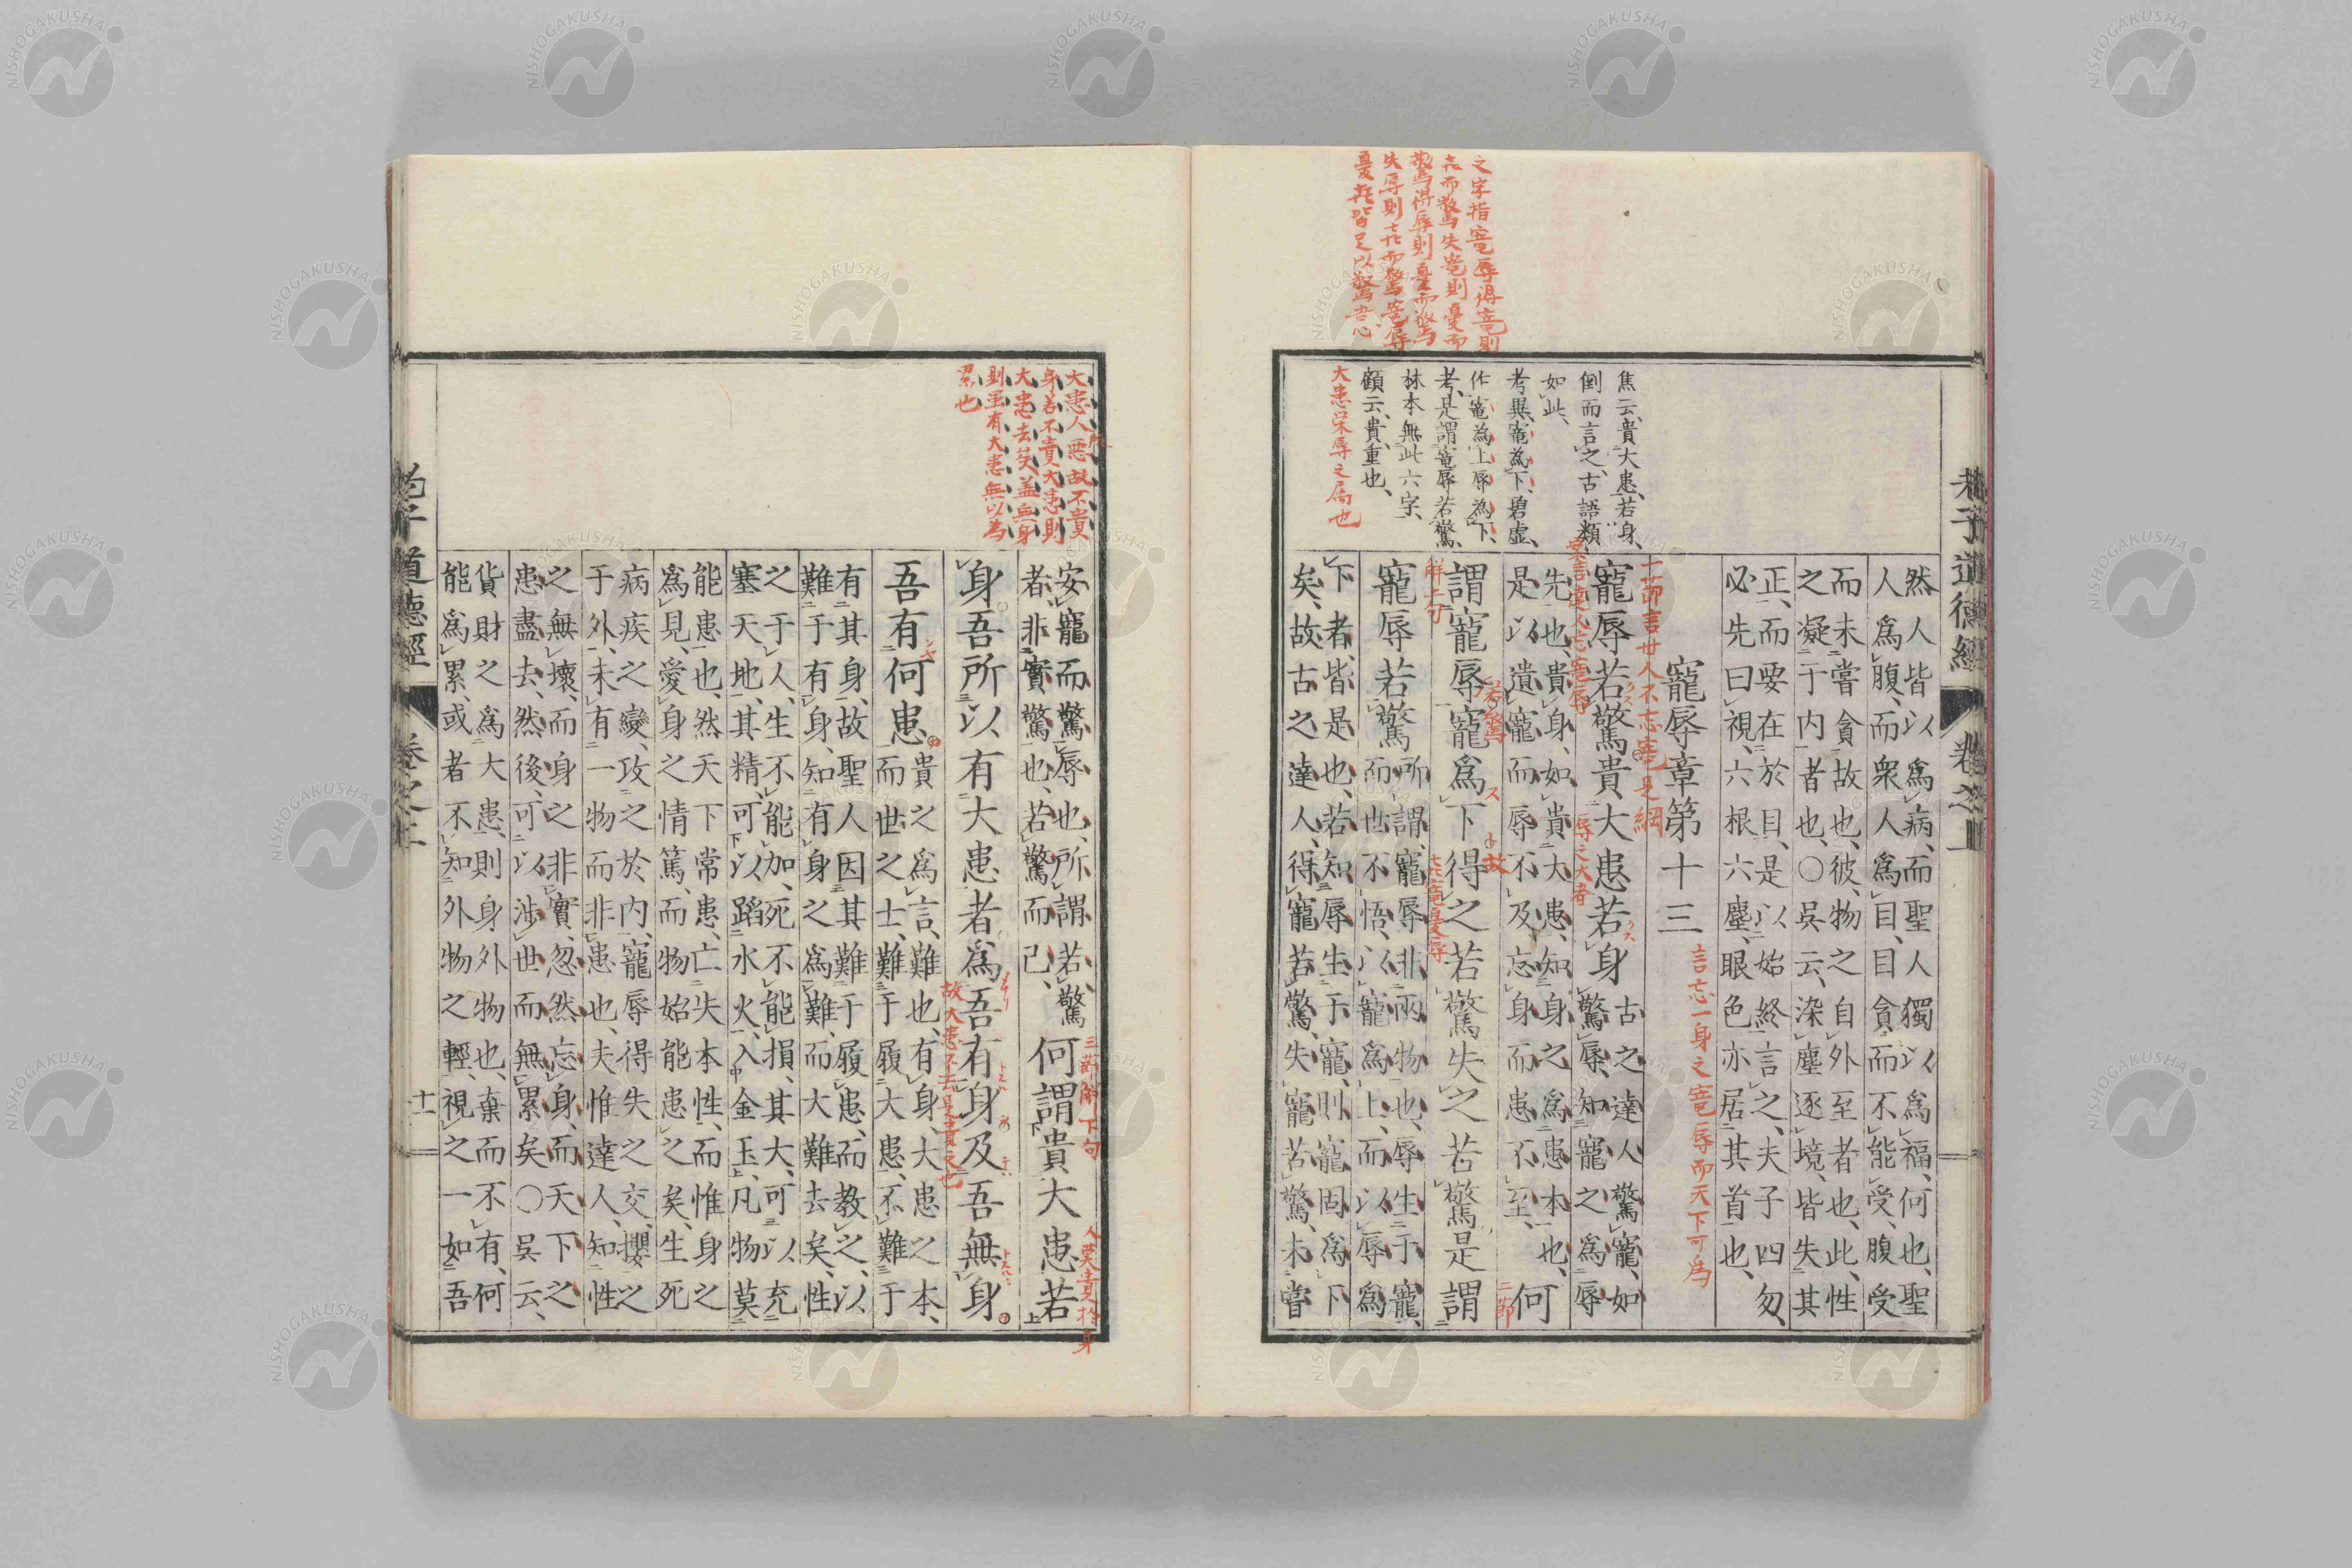 老子道德經 卷之上
之字指寵辱得寵則
喜而驚失寵則憂而
驚得辱則憂而驚
失辱則喜而驚寵辱
憂喜皆足以驚吾心
焦云、貴大患若身、
倒而言之、古語類、
如此、
考異、寵為下、碧虛、
作寵為上辱為下、
考、是謂寵辱若驚、
林本無此六字、
顧云、貴重也、
大患榮辱之属也
然人皆以爲病、而聖人獨以爲福、何也、聖
人爲腹、而衆人爲目、目貪而不能受、腹受
而未嘗貪故也、彼、物之自外至者也、此、性
之凝于内者也、〇吳云、染塵逐境、皆失其
正、而要在於目、是以始終言之、夫子四勿、
必先曰視、六根六塵、眼色亦居其首也、
寵辱章第十三
言忘一身之寵辱而天下可爲
一節言世人不忘寵是綱
寵辱若驚貴大患若身
古之達人驚寵、如
驚辱、知寵之爲辱
辱之大者
先也、貴身、如貴大患、知身之爲患本也、
是以遺寵而辱不及、忘身而患不至、
何
二節
謂寵辱寵爲下得之若驚失之若驚是謂
若驚
故
解上句
喜寵憂辱
寵辱若驚
所謂寵辱非兩物也、辱生于寵、
而世不悟、以寵爲上、而以辱爲
下者、皆是也、若知辱生于寵、則寵固爲下
矣、故古之達人、得寵若驚、失寵若驚、未嘗
大患人所惡故不貴
身若不貴大患則
大患去矣蓋無身
則虽有大患無以爲
累也
安寵而驚辱也、所謂若驚
者、非實驚也、若驚而已、
三節解下句
何謂貴大患若
人莫貴於身
身吾所以有大患者爲吾有身及吾無身
故大患不去是貴之也
吾有何患
貴之爲言、難也、有身、大患之本、
而世之士、難于履大患、不難于
有其身、故聖人因其難于履患、而教之、以
難于有身、知有身之爲難、而大難去矣、性
之于人、生不能加、死不能損、其大、可以充
塞天地、其精、可以蹈水火、入金玉、凡物莫
能患也、然天下常患、亡失本性、而惟身之
爲見、愛身之情篤、而物始能患之矣、生死
病疾之變、攻之於内、寵辱得失之交、攖之
于外、未有一物而非患也、夫惟達人、知性
之無壞、而身之非實、忽然忘身、而天下之
患盡去、然後、可以涉世而無累矣〇吳云、
貨財之爲大患、則身外物也、棄而不有、何
能爲累、或者不知外物之輕、視之一如吾
老子道德經 卷之上 十一